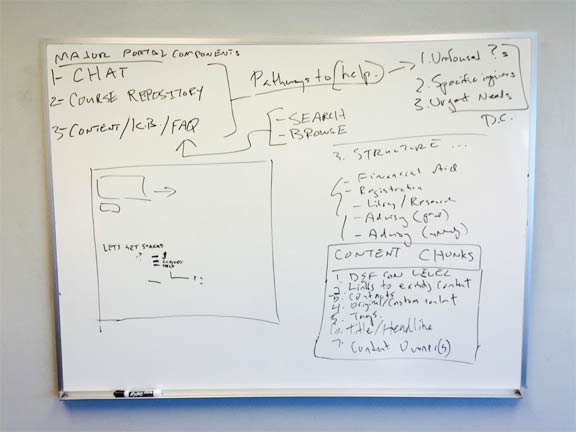 MAJOR PORTAL COMPONENTS
1- CHAT
2- COURSE REPOSITORY
3- CONTENT/KB/FAQ
Pathways to [help.]
1. Unfocused ?s
2. Specific
3. Urgent Needs
D.C.
- SEARCH
- BROWSE
3. STRUCTURE ...
- Financial Aid
- Registration
- Library/Research
- Advising
- Advising
LETS GET STARTED
?
CONTENT CHUNKS
1. DEFCON LEVEL
2. Links to existing content
3. Contacts
4. Original/Custom content
5. Tags
6. Title/Headline
7. Content Owner(s)
EXPO